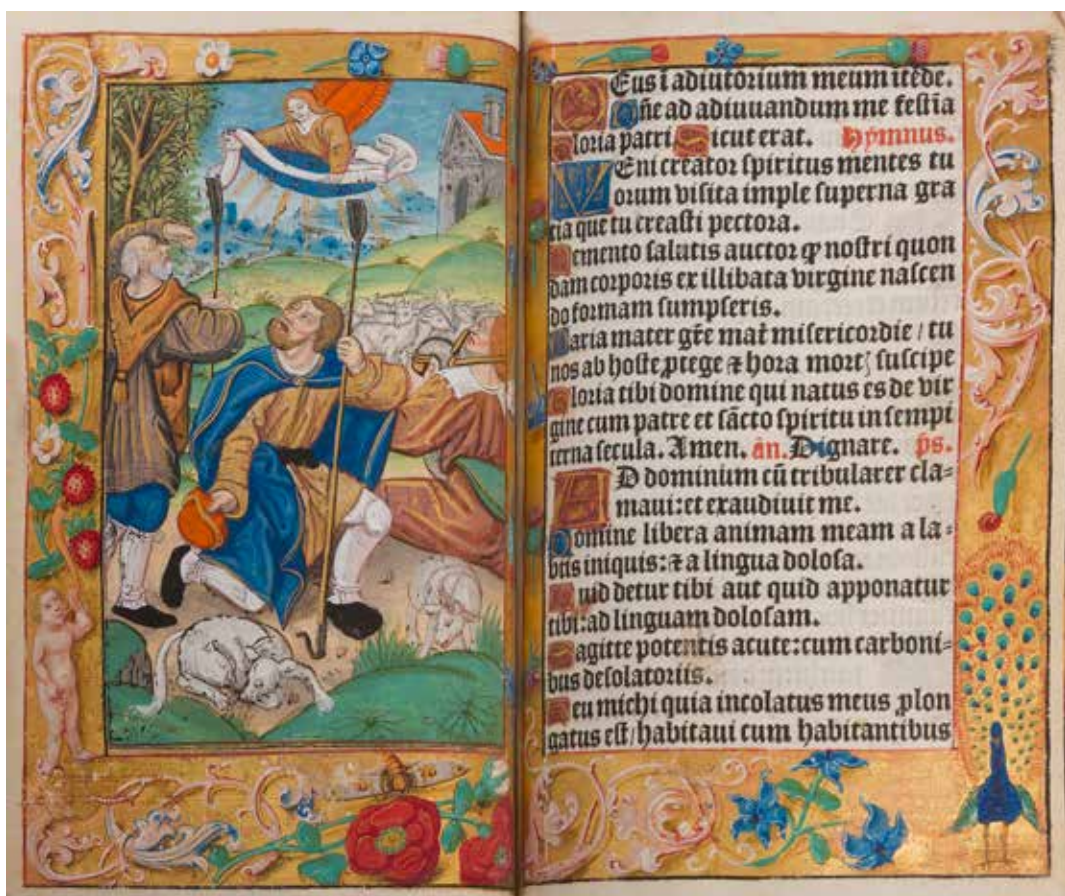 DEus ī adiutorium meum ītēde.
Dn̄e ad adiuuandum me festīa
Gloria patri. Sicut erat. Hymnus.
VEni creator spiritus mentes tu
orum visita imple superna gra
tia que tu creasti pectora.
Memento salutis auctor ꝙ nostri quon
dam corporis ex illibata virgine nascen
do formam sumpseris.
Maria mater gr̄e mat̄ misericordie / tu
nos ab hoste ꝓtege ⁊ hora mortꝭ suscipe
Gloria tibi domine qui natus es de vir
gine cum patre et sācto spiritu in sempi
terna secula. Amen. an̄. Dignare. p̄s.
AD dominium cū tribularer cla-
maui: et exaudiuit me.
Domine libera animam meam a la-
biis iniquis: ⁊ a lingua dolosa.
Quid detur tibi aut quid apponatur
tibi: ad linguam dolosam.
Sagitte potentis acute: cum carboni-
bus desolatoriis.
Heu michi quia incolatus meus ꝓlon
gatus est / habitaui cum habitantibus